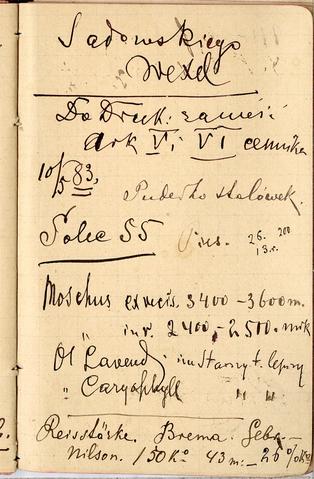 Sadowskiego
Wexel
Do Druk: zamieść
ark V i VI cennika
10/5 83,
Pudełko stalówek.
Solec 55
26. 200
13.
Moschus exvecis. 3400 – 3600 m.
in v. 2400 – 2500. mrk
Ol Lavend: im Starny t. lepszy
" Caryophyll " "
Reisstärke. Brema. Gebr.
Nilson. 150 Ko 43 m. – 26 %